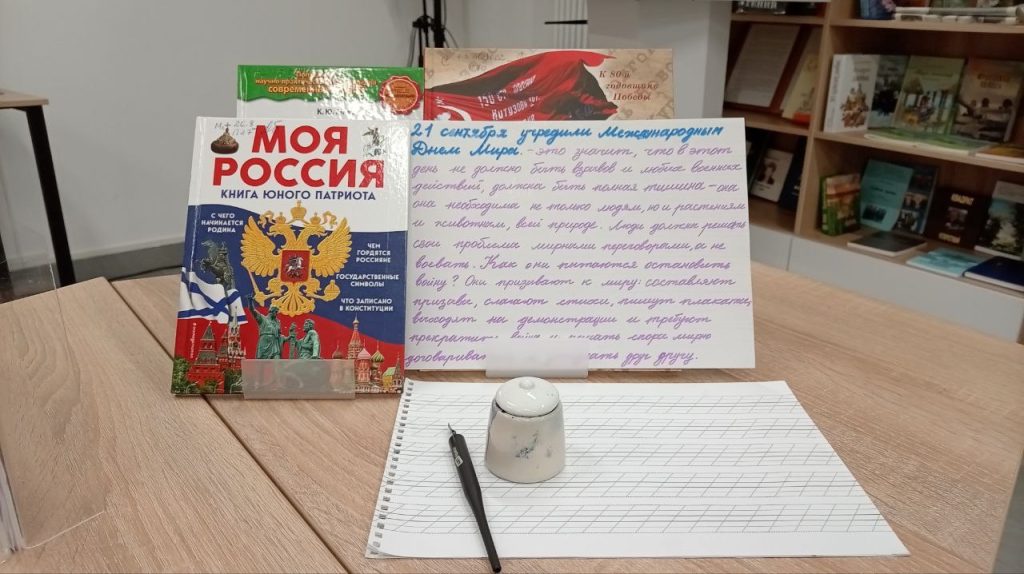 научно-прак
современ
К. Ю
150 СТ. ОРДЕНА
КУТУЗОВА
К 80-й
годовщине
Победы
МОЯ
РОССИЯ
КНИГА ЮНОГО ПАТРИОТА
С ЧЕГО
НАЧИНАЕТСЯ
РОДИНА
ЧЕМ
ГОРДЯТСЯ
РОССИЯНЕ
ГОСУДАРСТВЕННЫЕ
СИМВОЛЫ
ЧТО ЗАПИСАНО
В КОНСТИТУЦИИ
21 сентября учредили Международным
Днем Мира. - это значит, что в этот
день не должно быть взрывов и любых военных
действий, должна быть полная тишина - она
она необходима не только людям, но и растениям
и животным, всей природе. Люди должны решать
свои проблемы мирными переговорами, а не
воевать. Как они пытаются остановить
войну? Они призывают к миру: составляют
призывы, слагают стихи, пишут плакаты,
выходят на демонстрации и требуют
прекратить войну и начать скорее мирно
договариват ать друг другу.